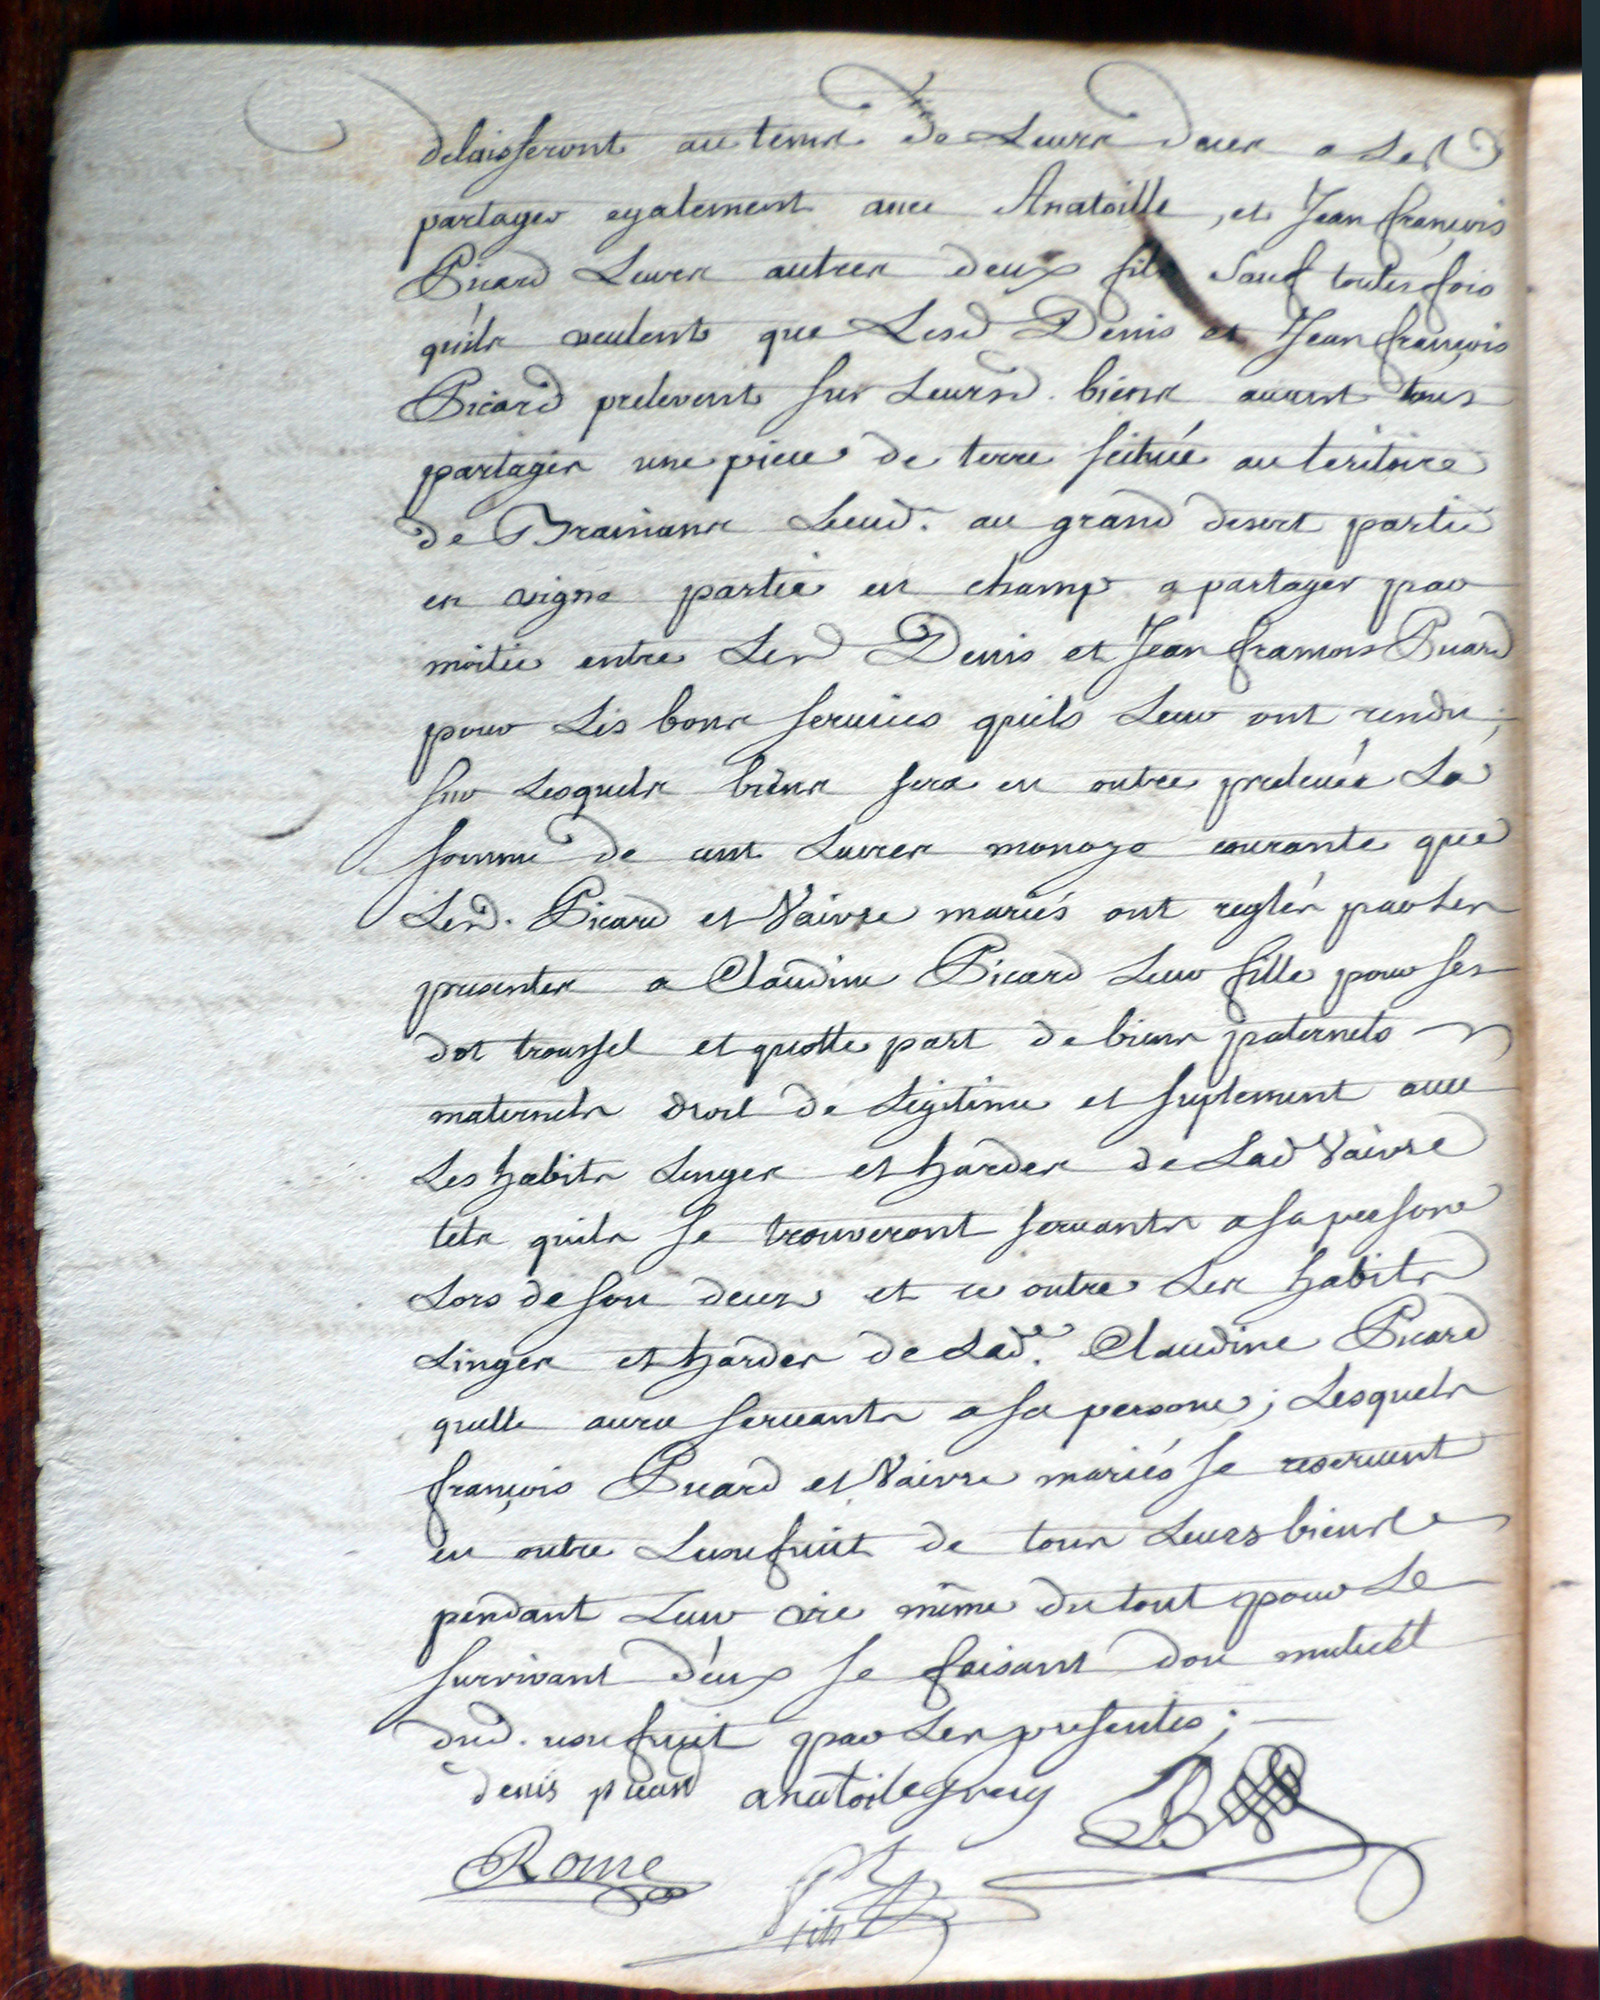 delaisseront au tems de Leurs deces a Les
partager egalement avec Anatoille, et Jean françois
Picard Leurs autres deux fils sauf toutesfois
quils veulent que Lesd Denis et Jean françois
Picard prelevent sur Leursd. biens avant tous
partages une piece de terre scituée au teritoire
de Brainans Lieud. au grand desert partie
en vigne partie en champ a partager par
moitié entre Lesd Denis et Jean francois Picard
pour Les bons services quils Leur ont rendu;
sur Lesquels biens sera en outre prelevée La
somme de cent Livres monoye courante que
Lesd. Picard et Vaivre mariés ont reglés par Les
presentes a Claudine Picard Leur fille pour ses
dot troussel et quotte part de biens paternels
maternels droit de Légitime et suplement avec
Les habits Linges et hardes de Lad Vaivre
tels quils se trouveront servants a sa persone
Lors de son deces et ce outre Les habits
Linges et hardes de Lad.e Claudine Picard
quelle aura servants a sa persone; Lesquels
françois Picard et Vaivre mariés se reservent
en outre Lusufruit de tous Leurs biens
pendant Leur vie même du tout pour Le
survivant d'eux se faisant don mutuel
dud. usufruit par Les presentes;
denis picard anatoile
Rome